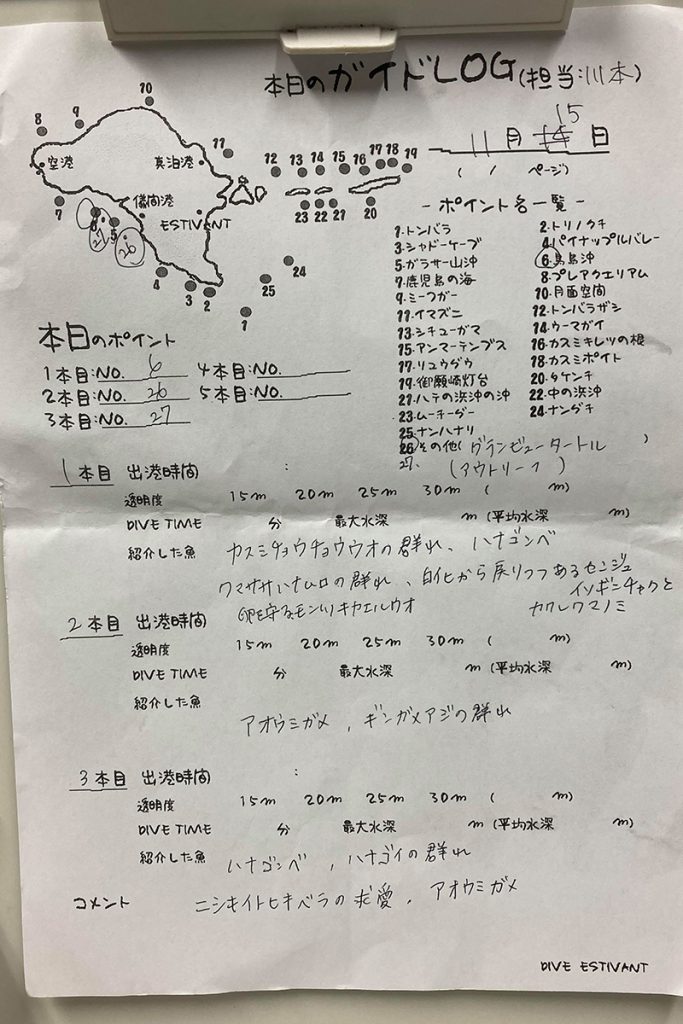 本日のガイドLOG(担当:川本)
11月 15 日
( / ページ)
10
8
9
空港
真泊港
11
12 13 14 15 16 17 18 19
儀間港
7
6
5
27
26
ESTIVANT
23 22 21
20
4
3
2
24
25
1
- ポイント名一覧 -
1.トンバラ 2.トリノクチ
3.シャドーケーブ 4.パイナップルバレー
5.ガラサー山沖 6.島島沖
7.鹿児島の海 8.プレアクエリアム
9.ミーフガー 10.月面空間
11.イマズニ 12.トンバラザシ
13.シチューガマ 14.ウーマガイ
15.アンマーテンプス 16.カスミキレツの根
17.リュウグウ 18.カスミポイト
19.御願崎灯台 20.タケンチ
21.ハテの浜沖の沖 22.中の浜沖
23.ムーチーグー 24.ナングチ
25.ナンハナリ
26.その他(グランビュータートル )
27. (アウトリーフ)
本日のポイント
1本目:NO. 6 4本目:NO.
2本目:NO. 26 5本目:NO.
3本目:NO. 27
1本目 出港時間 :
透明度 15m 20m 25m 30m ( m)
DIVE TIME 分 最大水深 m (平均水深 m)
紹介した魚 カスミチョウチョウウオの群れ、ハナゴンベ
クマササハナムロの群れ、白化から戻りつつあるセンジュ
イソギンチャクと
卵を守るモンツキカエルウオ カクレクマノミ
2本目 出港時間 :
透明度 15m 20m 25m 30m ( m)
DIVE TIME 分 最大水深 m (平均水深 m)
紹介した魚
アオウミガメ、ギンガメアジの群れ
3本目 出港時間 :
透明度 15m 20m 25m 30m ( m)
DIVE TIME 分 最大水深 m (平均水深 m)
紹介した魚 ハナゴンベ、ハナゴイの群れ
コメント ニシキイトヒキベラの求愛、アオウミガメ
DIVE ESTIVANT